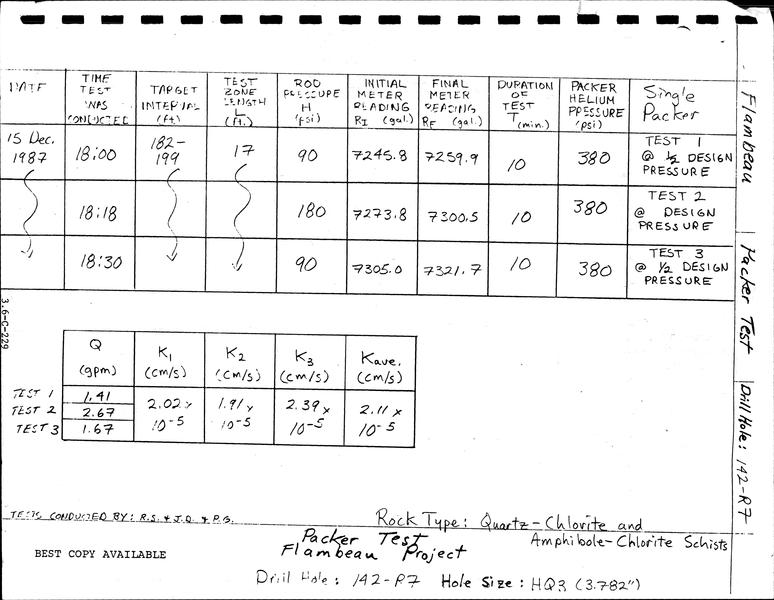 DATE | TIME TEST WAS CONDUCTED | TARGET INTERVAL (ft.) | TEST ZONE LENGTH L (ft.) | ROD PRESSURE H (psi) | INITIAL METER READING RI (gal.) | FINAL METER READING RF (gal.) | DURATION OF TEST T (min.) | PACKER HELIUM PRESSURE (psi) | Single Packer
15 Dec. 1987 | 18:00 | 182-199 | 17 | 90 | 7245.8 | 7259.9 | 10 | 380 | TEST 1 @ 1/2 DESIGN PRESSURE
18:18 | 180 | 7273.8 | 7300.5 | 10 | 380 | TEST 2 @ DESIGN PRESSURE
18:30 | 90 | 7305.0 | 7321.7 | 10 | 380 | TEST 3 @ 1/2 DESIGN PRESSURE
Flambeau Packer Test Drill Hole: 142-R7
3.6-C-229
Q (gpm) | K1 (cm/s) | K2 (cm/s) | K3 (cm/s) | Kave. (cm/s)
TEST 1 | 1.41 | 2.02 x 10-5 | 1.91 x 10-5 | 2.39 x 10-5 | 2.11 x 10-5
TEST 2 | 2.67
TEST 3 | 1.67
TESTS CONDUCTED BY: R.S. & J.D. & P.G.
Rock Type: Quartz-Chlorite and
Amphibole-Chlorite Schists
Packer Test
Flambeau Project
BEST COPY AVAILABLE
Drill Hole: 142-R7 Hole Size: HQ3 (3.782")